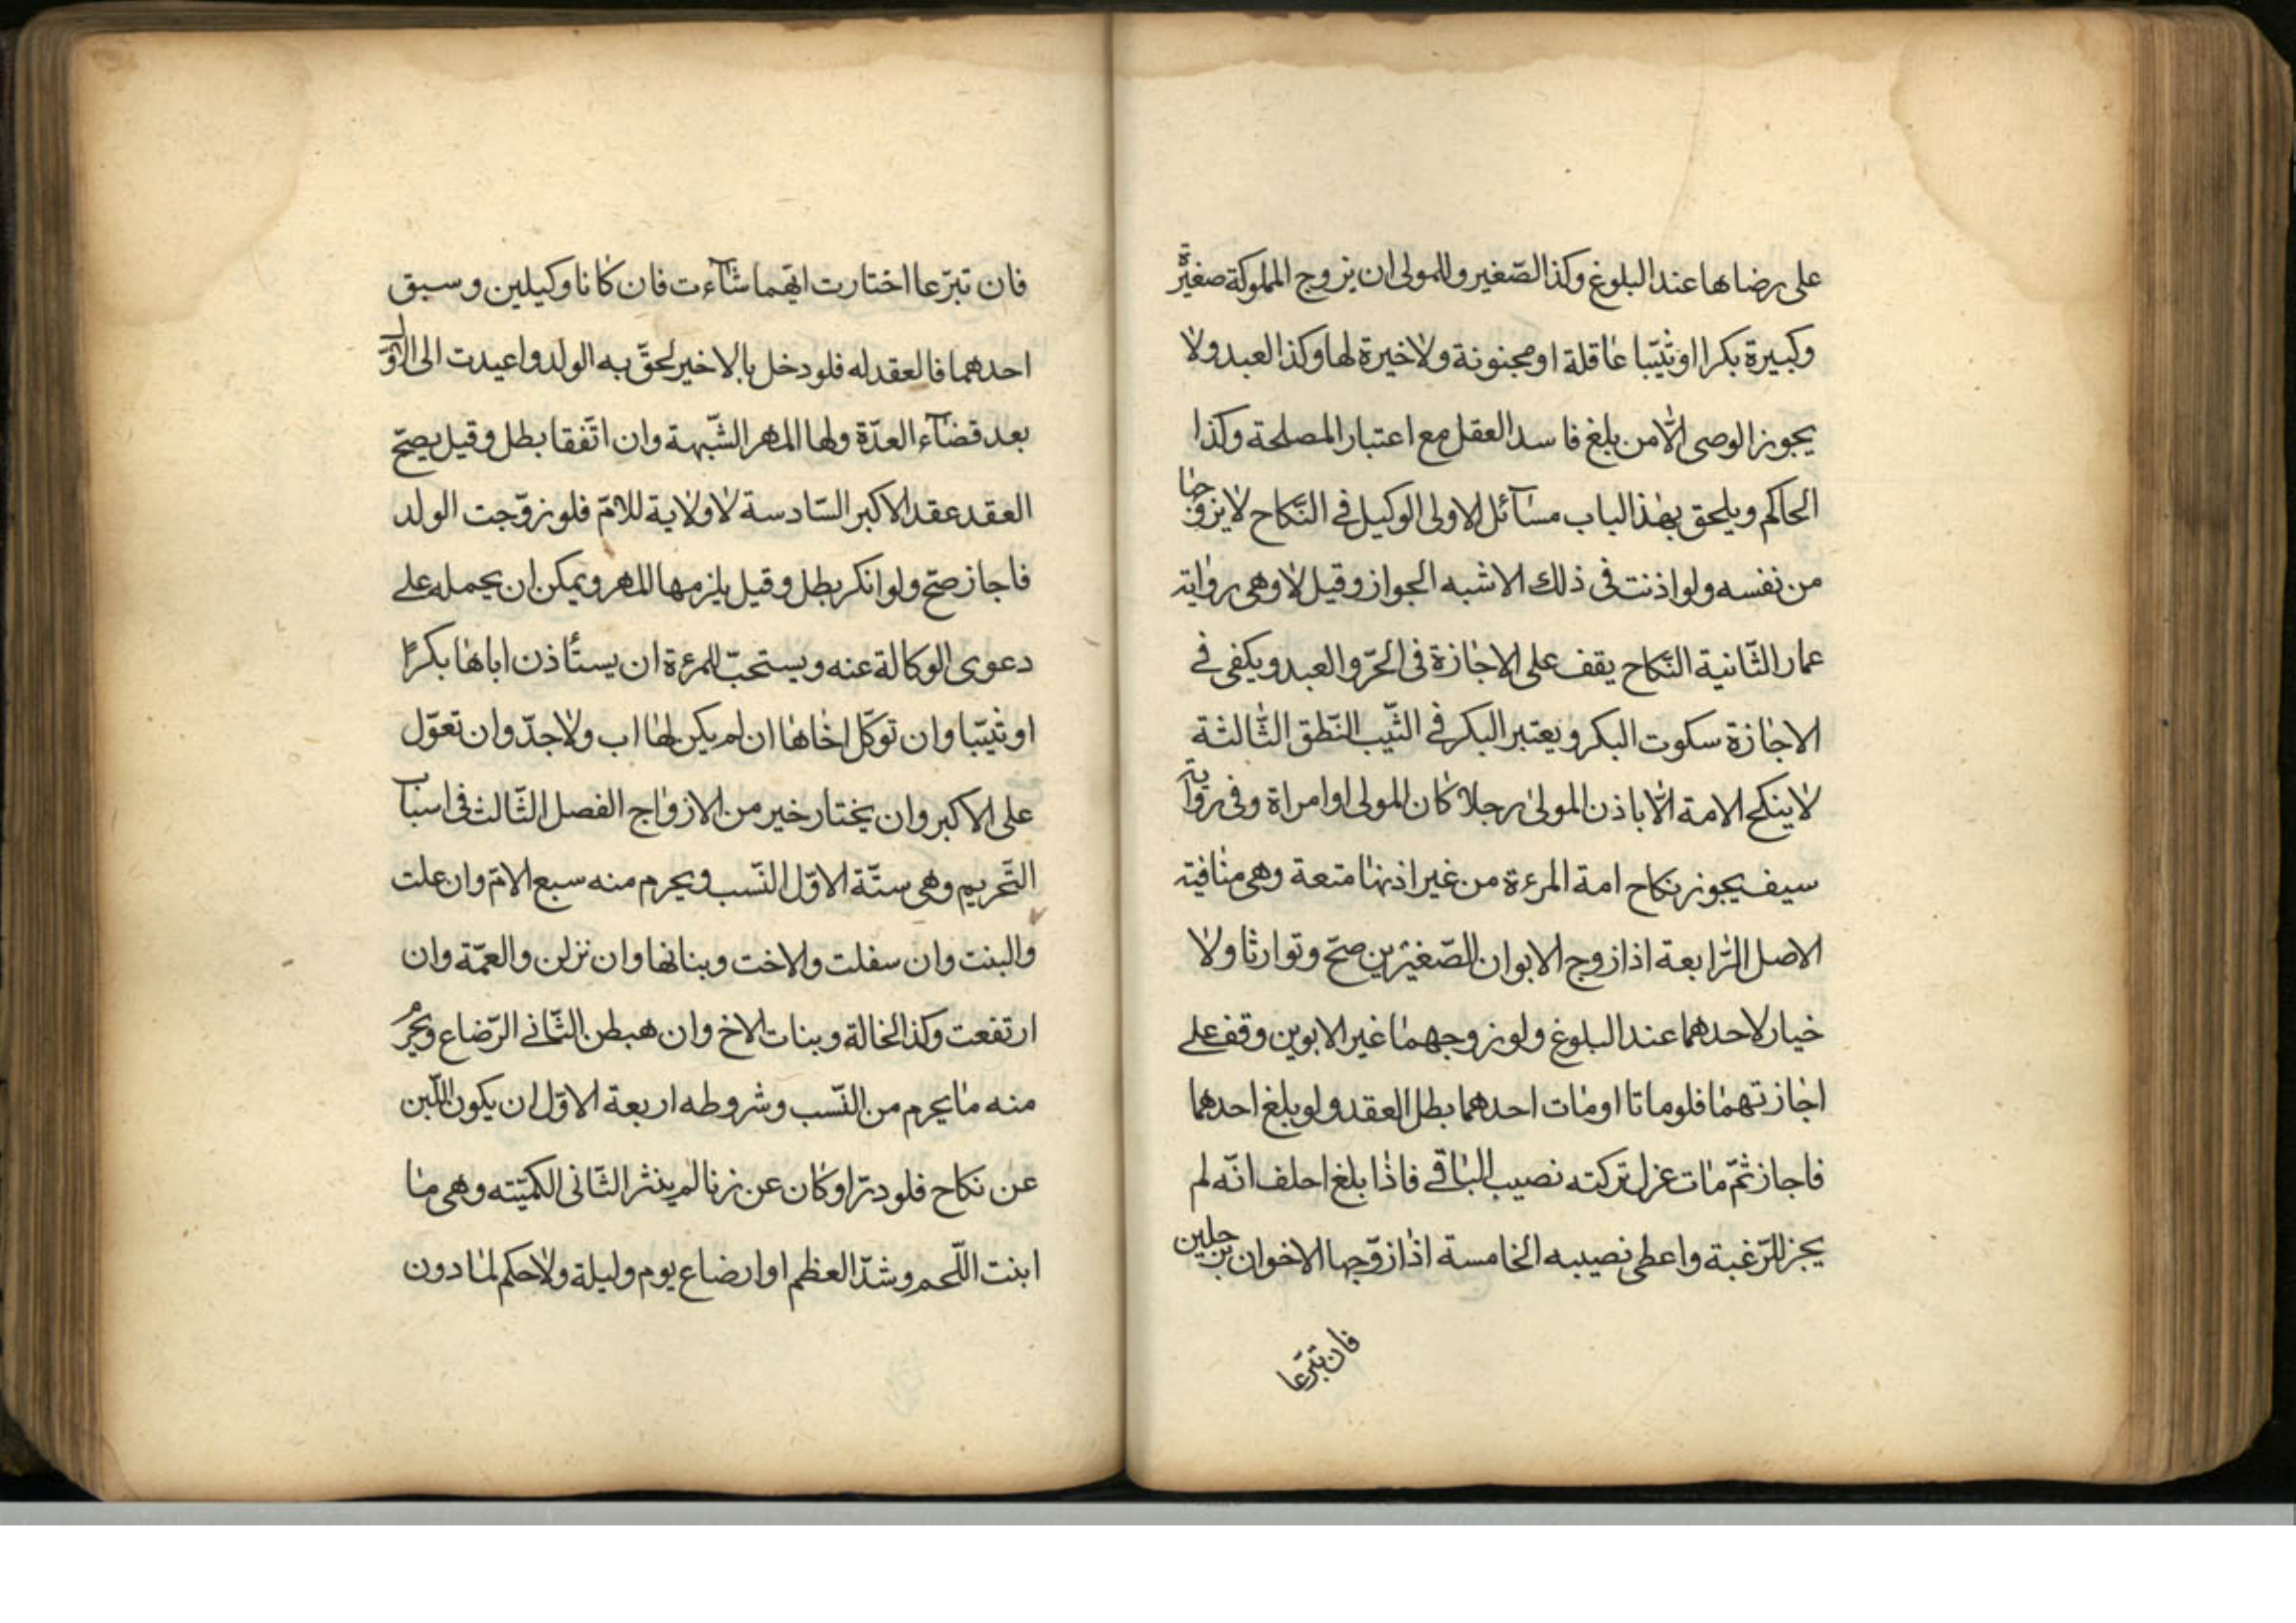 على رضاها عند البلوغ وكذا الصّغير وللمولى ان يزوج المملوكة صغيرة
وكبيرة بكرا او ثيّبا عاقلة او مجنونة ولا خيرة لها وكذا العبد ولا
يجوز الوصى الّا من بلغ فاسد العقل مع اعتبار المصلحة وكذا
الحاكم ويلحق بهذا الباب مسآئل الاولى الوكيل في النّكاح لا يزوّجها
من نفسه ولو اذنت فى ذلك الاشبه الجواز وقيل لا وهى رواية
عمار الثّانية النّكاح يقف على الاجازة فى الحرّ والعبد ويكفى في
الاجازة سكوت البكر ويعتبر البكر في الثّيب النّطق الثّالثة
لا ينكح الامة الّا باذن المولى رجلا كان المولى او امراة وفى رواية
سيف يجوز نكاح امة المرءة من غير اذنها متعة وهى منافية
الاصل الرّابعة اذا زوج الابوان الصّغيرين صحّ وتوارثا ولا
خيار لاحدهما عند البلوغ ولو زوجهما غير الابوين وقف على
اجازتهما فلو ماتا او مات احدهما بطل العقد ولو بلغ احدهما
فاجاز ثمّ مات عزل تركته نصيب الباقي فاذا بلغ احلف انّه لم
يجز للرّغبة واعطى نصيبه الخامسة اذا زوّجها الاخوان برجلين
فان تبرّعا
فان تبرّعا اختارت ايّهما شآءت فان كانا وكيلين وسبق
احدهما فالعقد له فلو دخل بالاخير لحقّ به الولد واعيدت الى الاوّل
بعد قضآء العدّة ولها المهر الشّبهة وان اتّفقا بطل وقيل يصحّ
العقد عقد الاكبر السّادسة لا ولاية للامّ فلو زوّجت الولد
فاجاز صحّ ولو انكر بطل وقيل يلزمها المهر ويمكن ان يحمله على
دعوى الوكالة عنه ويستحبّ للمرءة ان يستأذن اباها بكرًا
او ثيّبا وان توكّل اخاها ان لم يكن لها اب ولا جدّ وان تعوّل
على الاكبر وان يختار خير من الازواج الفصل الثّالث فى اسباب
التّحريم وهى ستّة الاوّل النّسب ويحرم منه سبع الامّ وان علت
والبنت وان سفلت والاخت وبناتها وان نزلن والعمّة وان
ارتفعت وكذا الخالة وبنات الاخ وان هبطن الثّاني الرّضاع ويحرم
منه ما يحرم من النّسب وشروطه اربعة الاوّل ان يكون اللّبن
عن نكاح فلو درّ او كان عن زنا لم ينشر الثّانى الكميّته وهى ما
ابنت اللّحم وشدّ العظم او ارضاع يوم وليلة ولا حكم لما دون